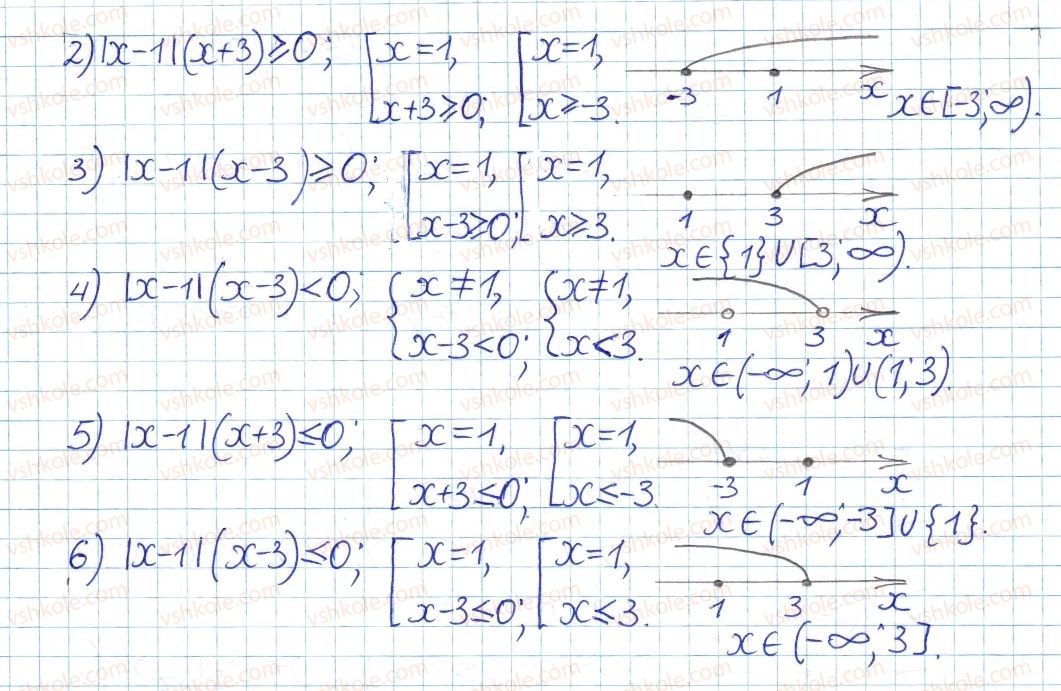 2) |x-1|(x+3)≥0; [x=1, x+3≥0; [x=1, x≥-3. -3 1 x x∈[-3;∞).
3) |x-1|(x-3)≥0; [x=1, x-3≥0; [x=1, x≥3. 1 3 x
x∈{1}∪[3;∞).
4) |x-1|(x-3)<0; {x≠1, x-3<0; {x≠1, x<3. 1 3 x
x∈(-∞;1)∪(1;3).
5) |x-1|(x+3)≤0; [x=1, x+3≤0; [x=1, x≤-3. -3 1 x
x∈(-∞;-3]∪{1}.
6) |x-1|(x-3)≤0; [x=1, x-3≤0; [x=1, x≤3. 1 3 x
x∈(-∞;3].
vshkole.com